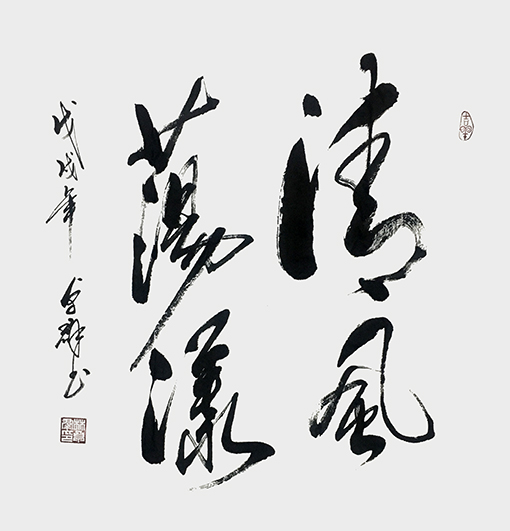 清風
蕩漾
戊戌年